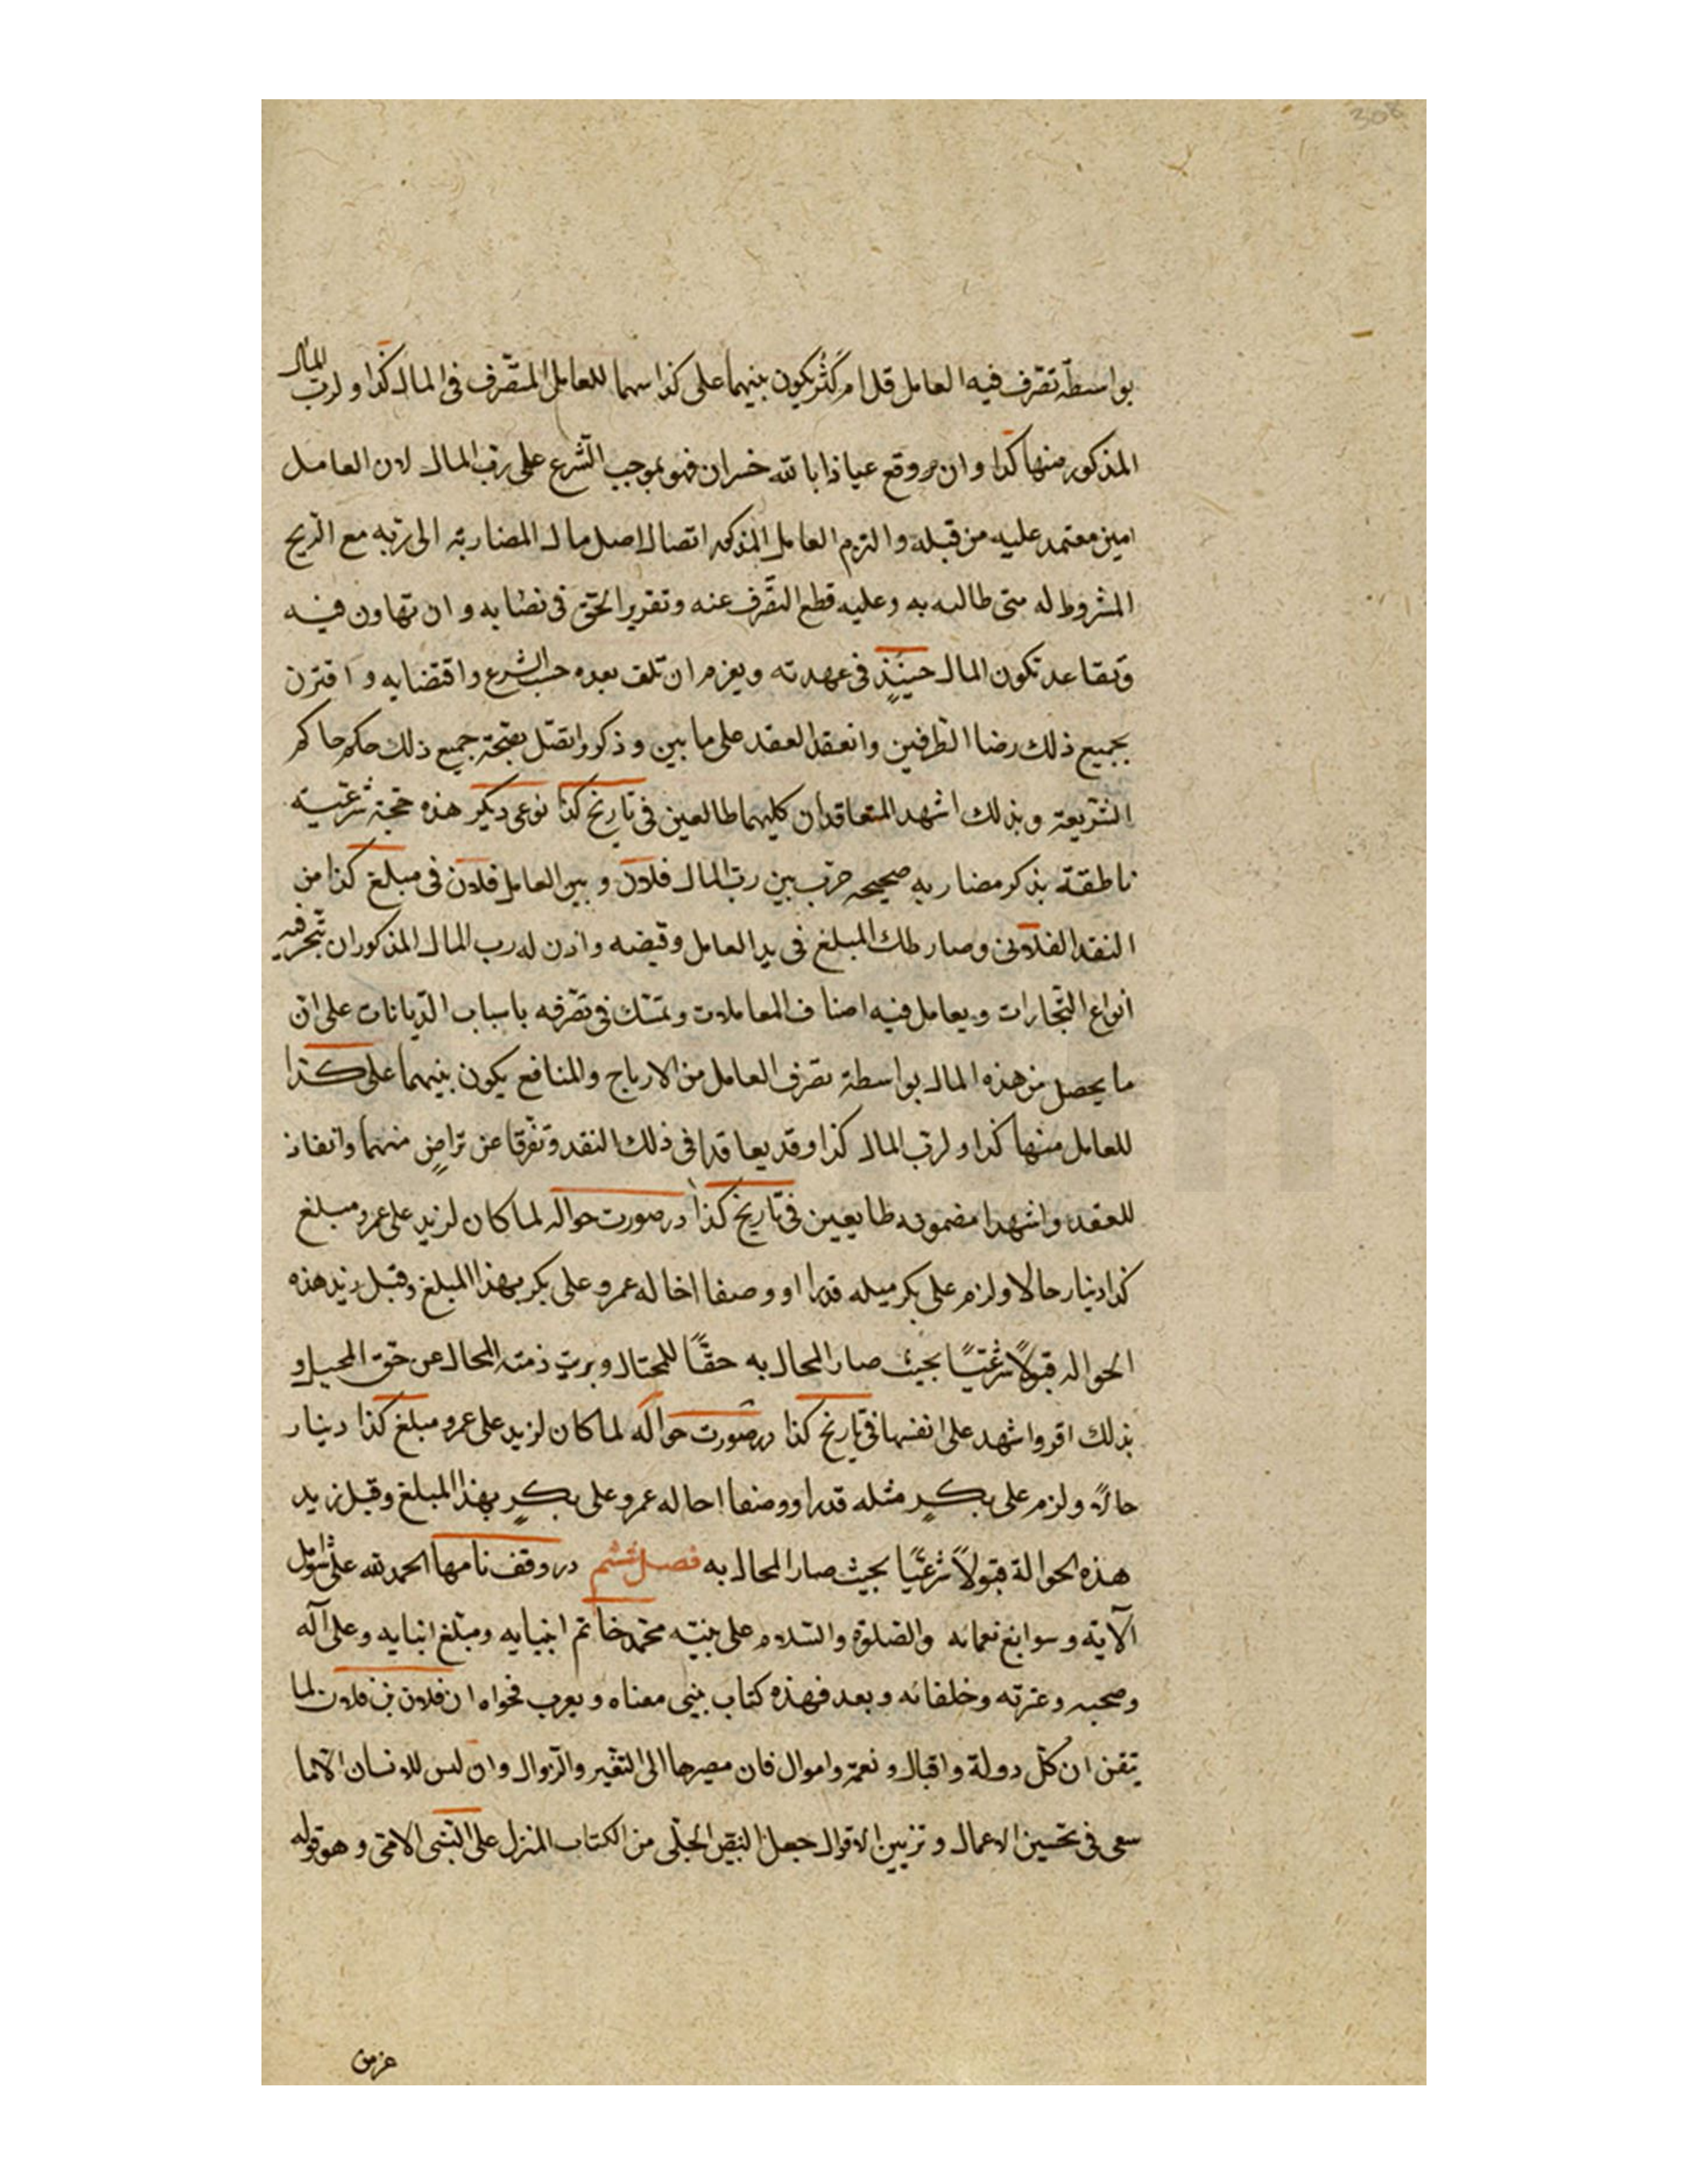 بواسطة تصرف فيه العامل قل ام كَثُر يكون بينهما على كذا سهما للعامل المتصّرف فى المال كذا و لربّ المال
المذكور منها كذا و ان وقع عياذا بالله خسران فهو بموجب الشّرع على ربّ المال لان العامل
امين معتمد عليه من قبله و التزم العامل المذكور اتصال اصل مال المضاربة الى ربّه مع الرّبح
المشروط له متى طالبه به و عليه قطع التصّرف عنه و تقرير الحقّ فى نصابه و ان تهاون فيه
و تقاعد تكون المال حينئذٍ فى عهدته و يغرم ان تلف بعده حسب الشرع و اقتضايه و اقترن
بجميع ذلك رضا الطّرفين و انعقد العقد على ما بين و ذكر و اتصّل بصحّة جميع ذلك حكم حاكم
الشّريعة و بذلك اشهد المتعاقدان كليهما طالعين فى تاريخ كذا نوعى ديكر هذه حجّة شرعيّة
ناطقة بذكر مضاربه صحيحه جرت بين ربّ المال فلان و بين العامل فلان فى مبلغ كذا من
النقد الفلانى و صار ذلك المبلغ فى يد العامل و قبضه و اذن له رب المال المذكور ان يتّجر فيه
أنواع التّجارات و يعامل فيه اصناف المعاملات و تمسّك فى تصّرفه باسباب الدّيانات على انّ
ما يحصل من هذه المال بواسطة تصّرف العامل من الارباح و المنافع يكون بينهما على كذا
للعامل منها كذا و لربّ المال كذا و قد يعاقدا فى ذلك النقد و تفّرقا عن تراضٍ منهما و انفاذ
للعقد و اشهدا مضمونه طايعين فى تاريخ كذا در صورت حواله لما كان لزيد على عمرو مبلغ
كذا دينار حالا و لزم على بكر ميله قدرا و وصفا اخاله عمرو على بكر بهذا المبلغ و قبل زيد هذه
الحواله قبولاً شرعيّاً بحيث صار المحال به حقّاً للمحتال و بريت ذمته المحال عن حق المحيل و
بذلك اقر و اشهد على انفسها فى تاريخ كذا در صورت حواله لما كان لزيد على عمرو مبلغ كذا دينار
حالاً و لزم على بكرٍ مثله قدرا و وصفا احاله عمرو على بكرٍ بهذا المبلغ و قبل زيد
هذه الحوالة قبولاً شرعيًّا بحيث صار المحال به فصل ششم در وقف نامها الحمد لله على شوامل
آلايه و سوابغ نعمائه و الصّلوة و السّلام على نبيّه محمّد خاتم انبيايه و مبلّغ انبايه و على آله
و صحبه و عترته و خلفائه و بعد فهذه كتاب ينبى معناه و يعرب فحواه ان فلان بن فلان لما
تيقن ان كلّ دولة و اقبال و نعمة و اموال فان مصيرها الى التغّير و الزّوال و ان ليس للانسان الّا ما
سعى فى تحسين الاعمال و تزيين الاقوال جعل النصّ الجلّى من الكتاب المنزل على النّبى الامّى و هو قوله
عزمن